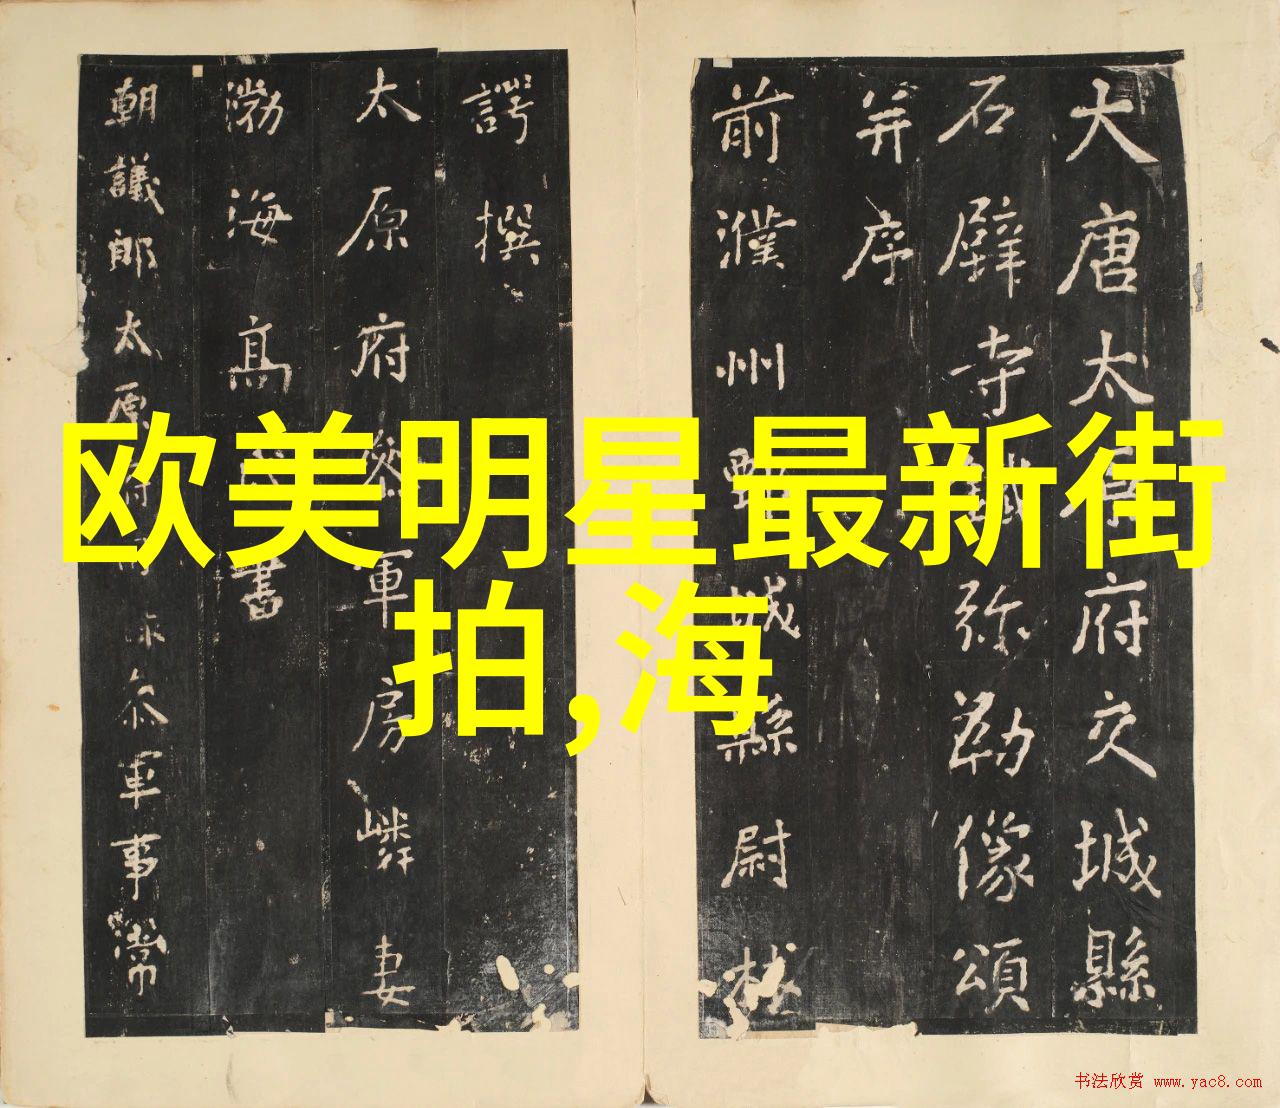 欧美明星最新街
拍,海
大唐太府交城縣
石壁寺弥勒像頌
并序
前濮州鄄城縣尉林
諤撰
太原府叅軍房嶙妻
渤海髙書
朝議郎太原府叅軍事常
书法欣赏 www.yac8.com